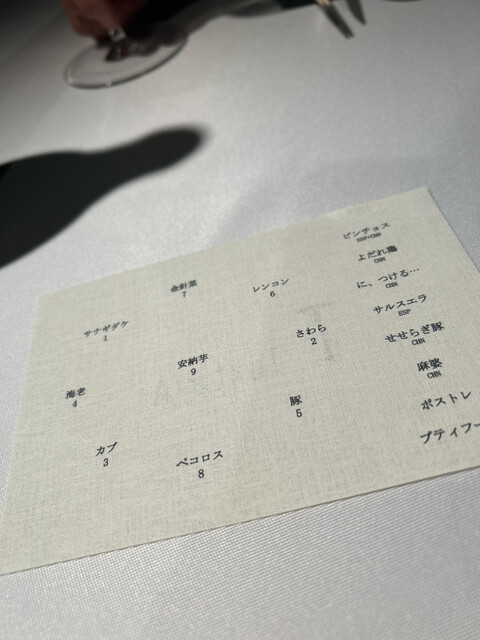 金針菜
7
レンコン
6
サナギダケ
1
さわら
2
安納芋
9
海老
4
豚
5
カブ
3
ペコロス
8
ピンチョス
ESP×CHN
よだれ鶏
CHN
に、つける…
CHN
サルスエラ
ESP
せせらぎ豚
CHN
麻婆
CHN
ポストレ
プティフー